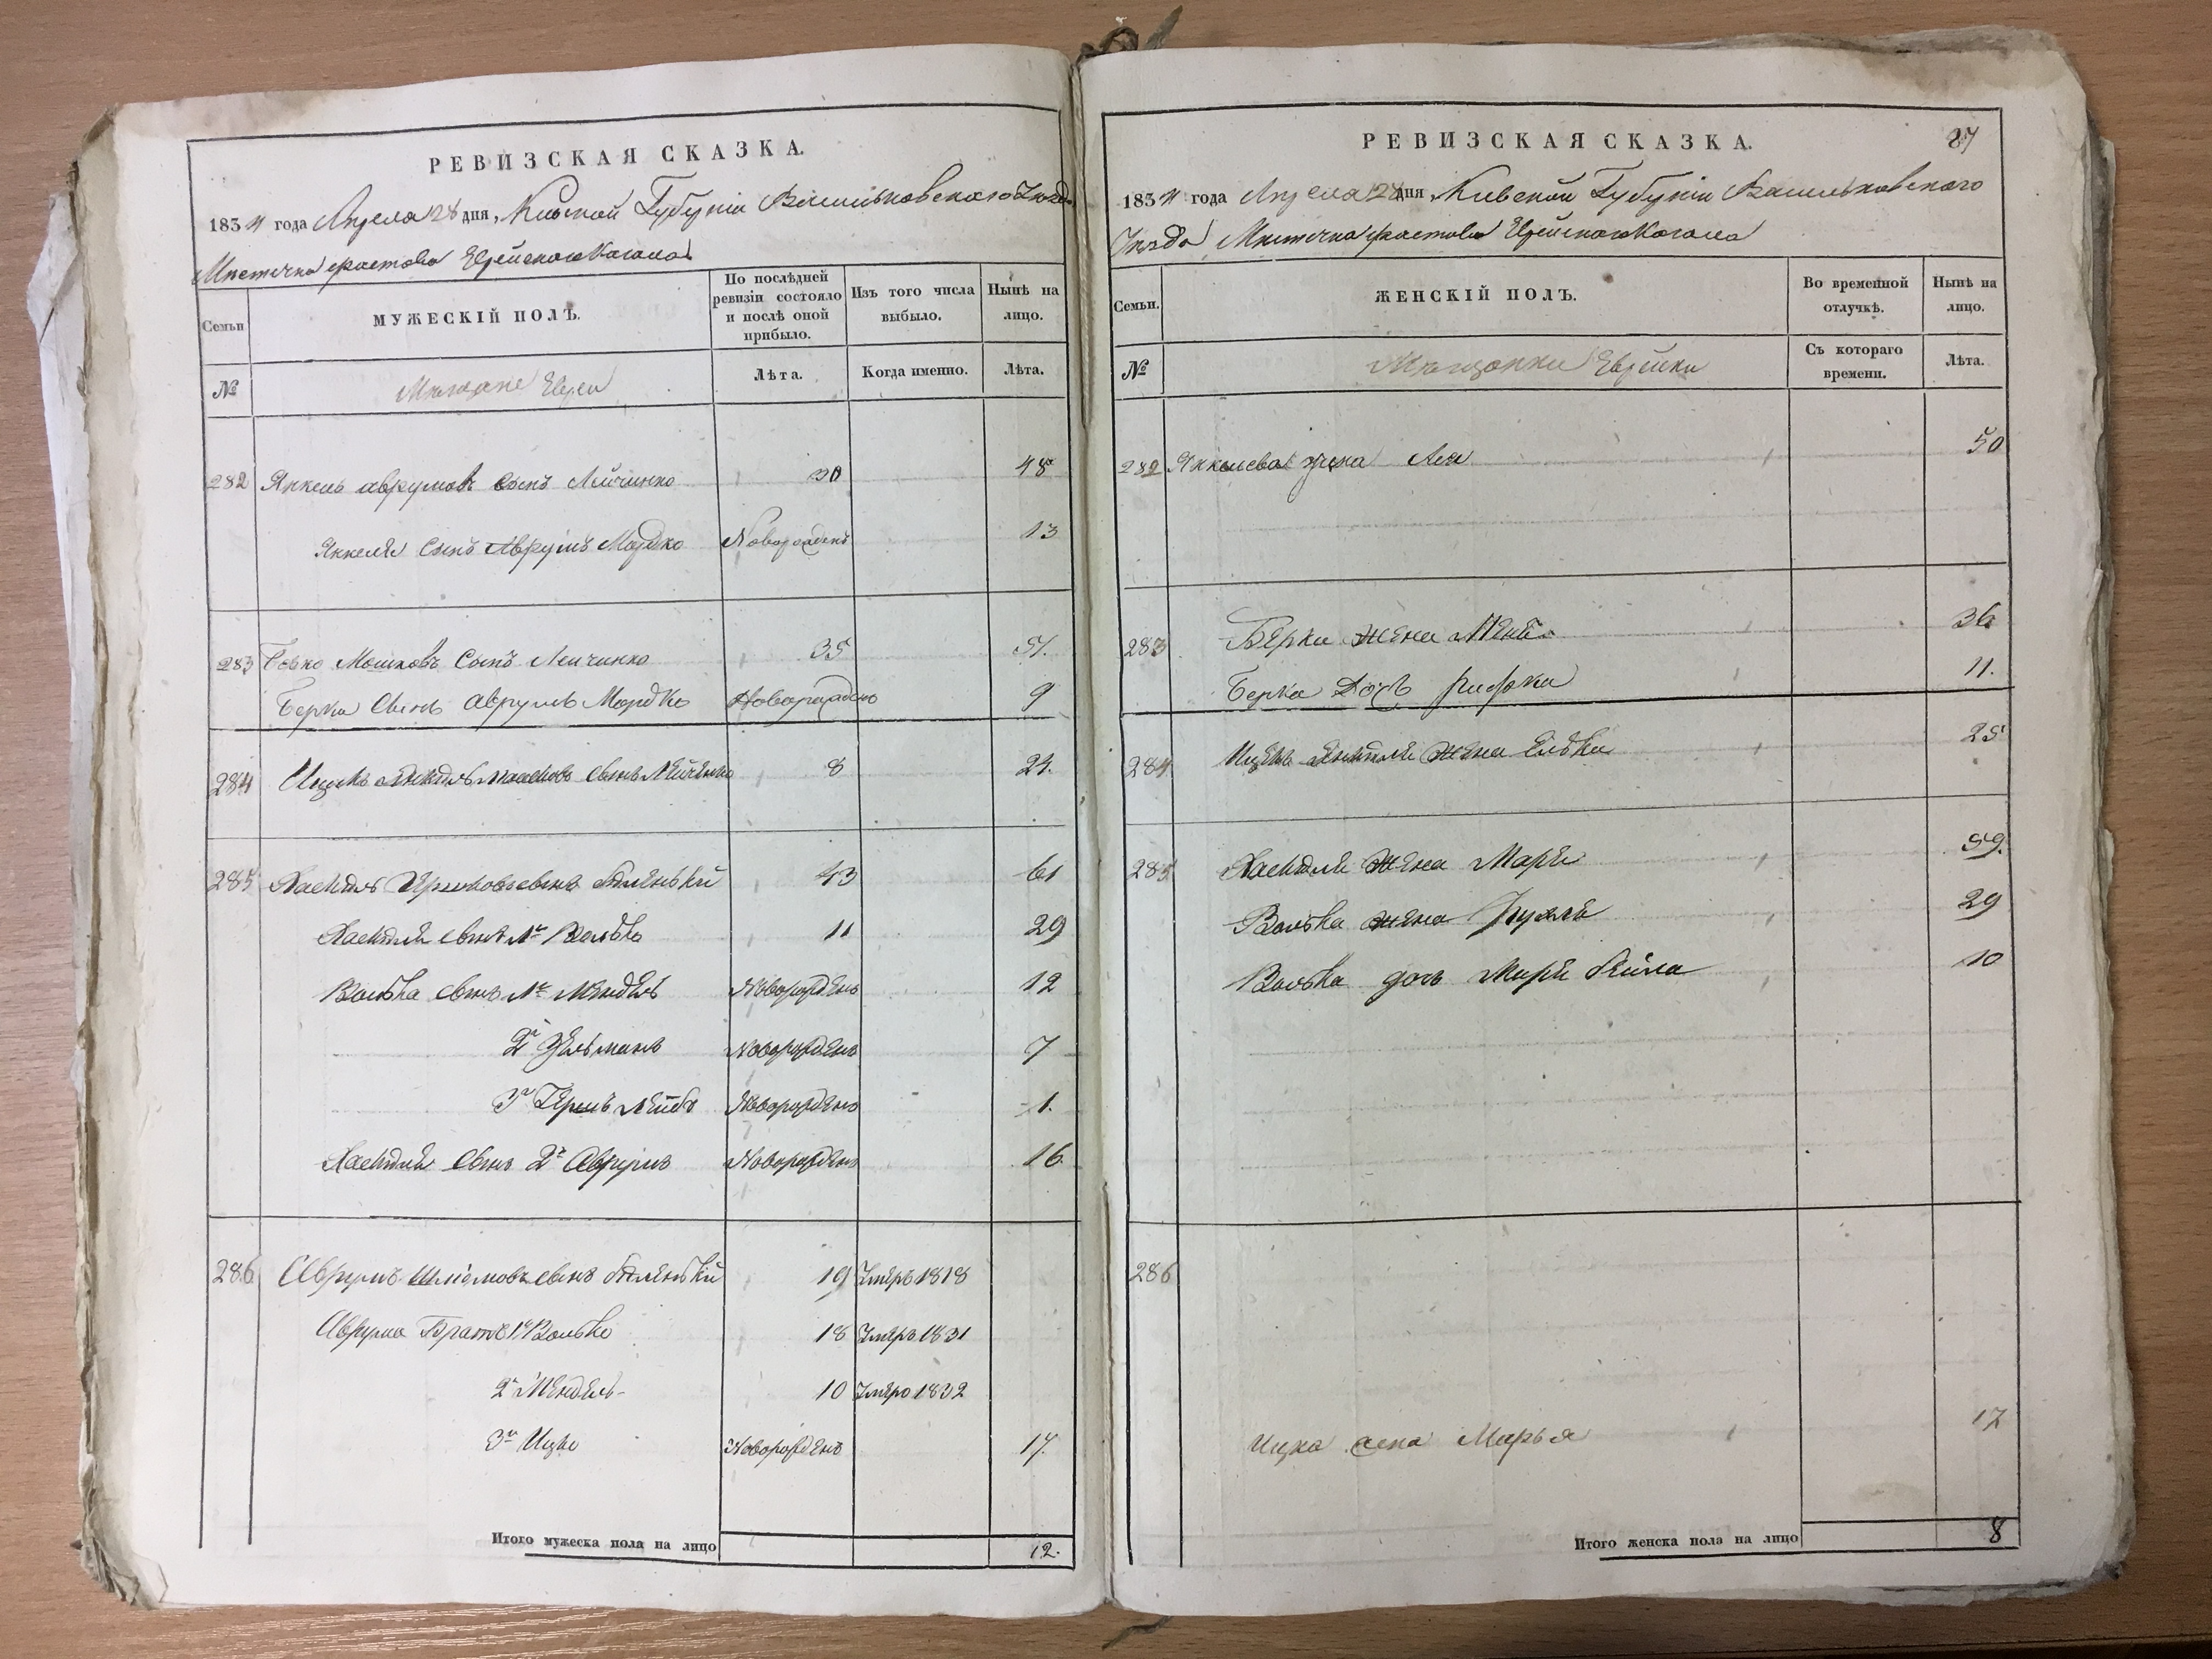 РЕВИЗСКАЯ СКАЗКА.
1834 года Апреля 28 дня, Киевской Губернiи Васильковского Уезда
Местечка Фастова Еврейского Кагала
Семьи
МУЖЕСКІЙ ПОЛЪ.
По послѣдней ревизіи состояло и послѣ оной прибыло.
Изъ того числа выбыло.
Нынѣ на лицо.
№
Мещане Евреи
Лѣта.
Когда именно.
Лѣта.
282 Янкель Аврумовъ сынъ 30 48
Янкеля сынъ Аврумъ Мордко Новорожденъ 13
283 Мошковъ сынъ 35 51.
Берка сынъ Аврумъ Мордко Новорожденъ 9
284 Ицикъ сынъ 8 24.
285 сынъ 43 61
сынъ 1й Волько 11 29
Волька сынъ 1й Мендель Новорожденъ 12
2й Зельманъ Новорожденъ 7
3й Гершъ Лейбъ Новорожденъ 1.
сынъ 2й Аврумъ Новорожденъ 16
286 Аврумъ Шліомовъ сынъ 19 Умеръ 1818
Аврума Братъ 1й Волько 18 Умеръ 1831
2й Мендель 10 Умеръ 1832
3й Ицко Новорожденъ 17.
Итого мужеска пола на лицо 12.
РЕВИЗСКАЯ СКАЗКА. 87
1834 года Апреля 28 дня, Киевской Губернiи Васильковского
Уезда Местечка Фастова Еврейского Кагала
Семьи.
ЖЕНСКІЙ ПОЛЪ.
Во временной отлучкѣ.
Нынѣ на лицо.
№
Мещанки Еврейки
Съ котораго времени.
Лѣта.
282 Янкелева жена Лея 50
283 Берки жена 36
Берка дочь Рифка 11.
284 Ицикъ жена 25
285 жена Маря 59.
Волька жена 29
Волька дочь Маря Бейла 10
286
Ицка жена Марья 17
Итого женска пола на лицо 8